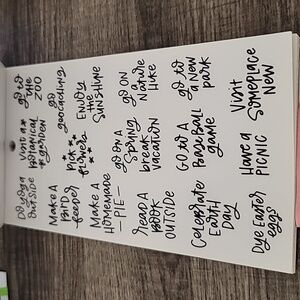 go to
the
ZOO
go
geocaching
ENJOY
the
SUNSHINE
go ON
a
Nature
Hike
go to
a New
park
Visit
Someplace
New
Visit a
botanical
garden
Pick
flowers
go on a
Spring
break
vacation
Go to a
Baseball
game
Have a
PICNIC
Do yoga
outside
Make A
BIRD
feeder
Make A
Homemade
PIE
read a
BOOK
OUTSIDE
Celebrate
Earth
Day
Dye Easter
eggs